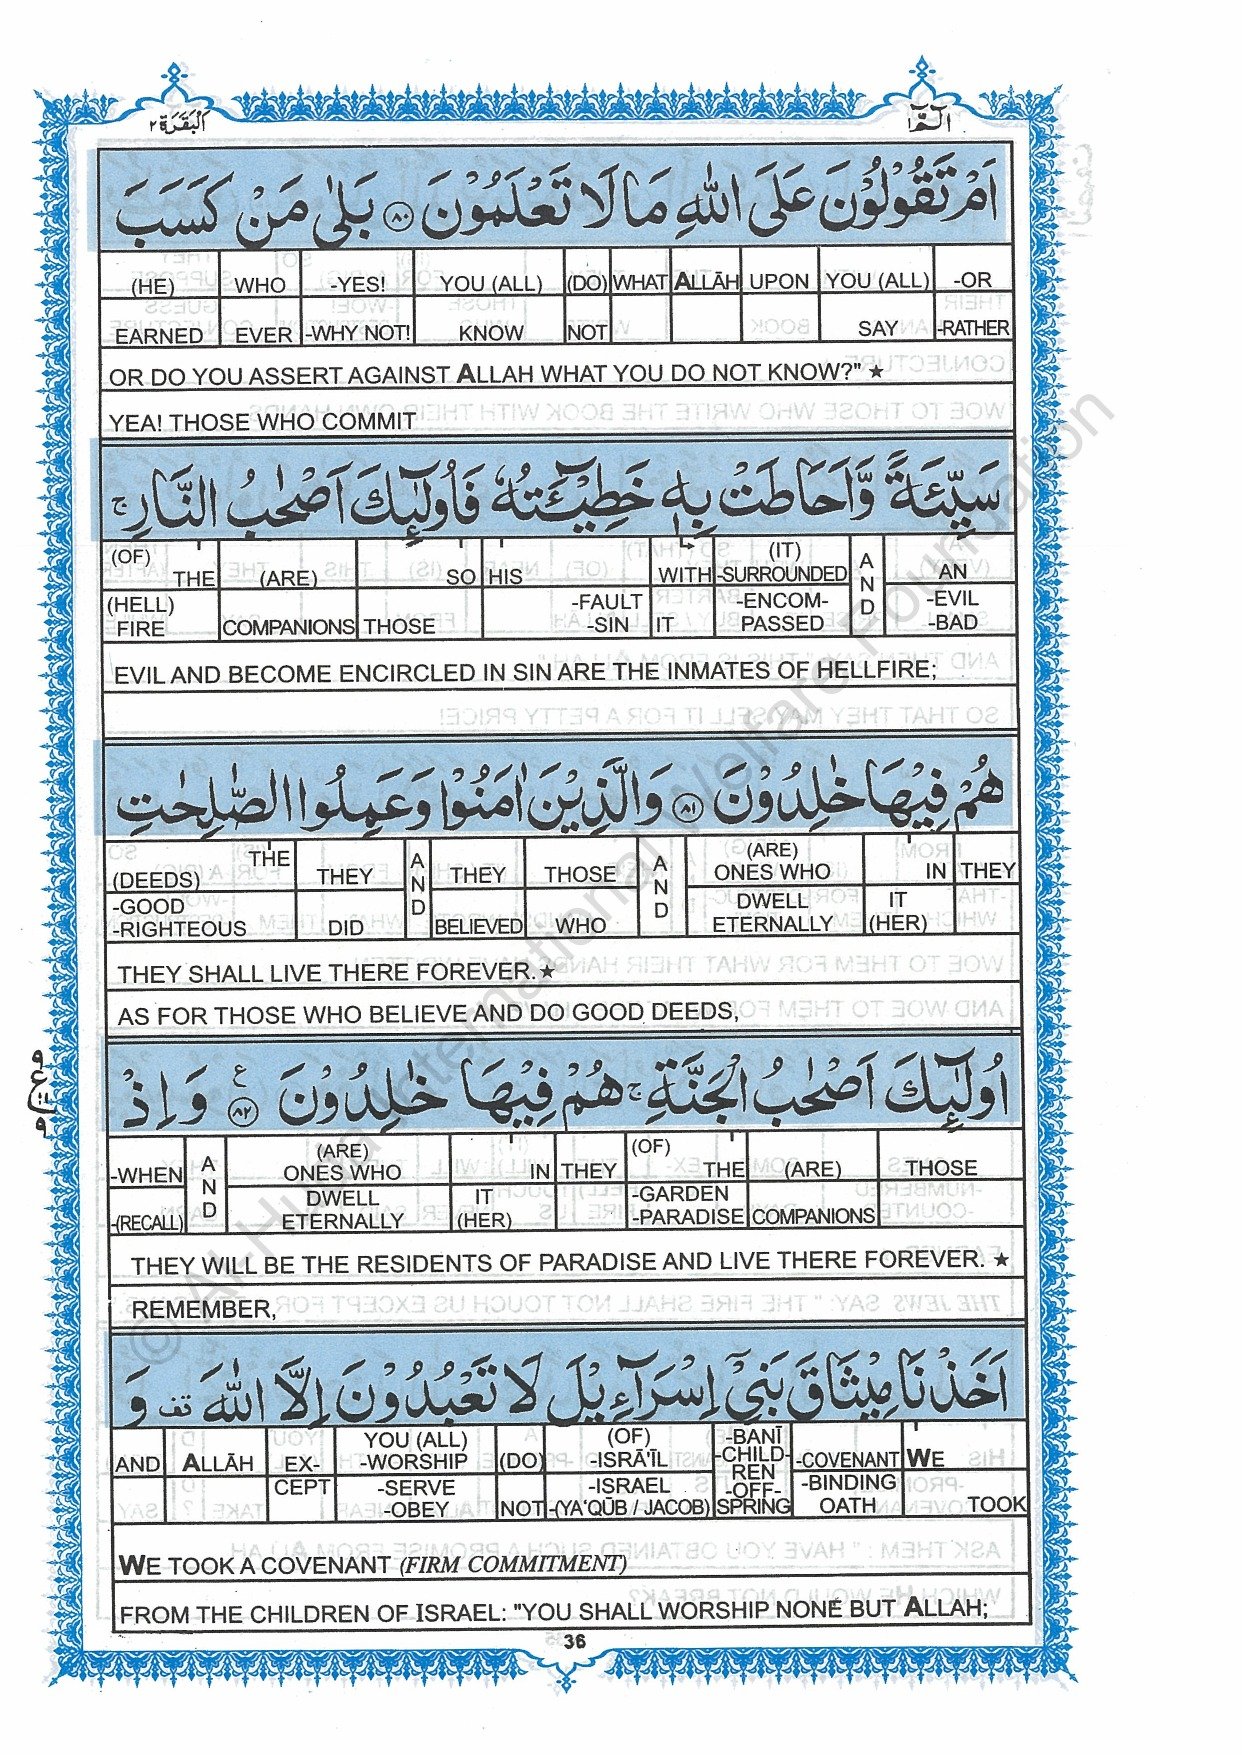 الٓمّٓ ١
اَلْبَقَرَة ٢
اَمْ تَقُوْلُوْنَ عَلَى اللّٰهِ مَا لَا تَعْلَمُوْنَ ﴿٨٠﴾ بَلٰى مَنْ كَسَبَ
(HE) WHO -YES! YOU (ALL) (DO) WHAT ALLĀH UPON YOU (ALL) -OR
EARNED EVER -WHY NOT! KNOW NOT SAY -RATHER
OR DO YOU ASSERT AGAINST ALLAH WHAT YOU DO NOT KNOW?" ★
YEA! THOSE WHO COMMIT
سَيِّئَةً وَّاَحَاطَتْ بِهٖ خَطِيْٓئَتُهٗ فَاُولٰٓئِكَ اَصْحٰبُ النَّارِ ۚ
(OF) THE (ARE) SO HIS WITH -SURROUNDED (IT) AND AN
(HELL) FIRE COMPANIONS THOSE -FAULT -SIN IT -ENCOM-PASSED -EVIL -BAD
EVIL AND BECOME ENCIRCLED IN SIN ARE THE INMATES OF HELLFIRE;
هُمْ فِيْهَا خٰلِدُوْنَ ﴿٨١﴾ وَالَّذِيْنَ اٰمَنُوْا وَعَمِلُوا الصّٰلِحٰتِ
THE (DEEDS) THEY AND THEY THOSE AND (ARE) ONES WHO IN THEY
-GOOD -RIGHTEOUS DID BELIEVED WHO DWELL ETERNALLY IT (HER)
THEY SHALL LIVE THERE FOREVER. ★
AS FOR THOSE WHO BELIEVE AND DO GOOD DEEDS,
اُولٰٓئِكَ اَصْحٰبُ الْجَنَّةِ ۚ هُمْ فِيْهَا خٰلِدُوْنَ ﴿٨٢﴾ ع وَاِذْ
-WHEN AND (ARE) ONES WHO IN THEY (OF) THE (ARE) THOSE
-(RECALL) DWELL ETERNALLY IT (HER) -GARDEN -PARADISE COMPANIONS
THEY WILL BE THE RESIDENTS OF PARADISE AND LIVE THERE FOREVER. ★
REMEMBER,
اَخَذْنَا مِيْثَاقَ بَنِيْٓ اِسْرَآءِيْلَ لَا تَعْبُدُوْنَ اِلَّا اللّٰهَ قف وَ
AND ALLĀH EX- YOU (ALL) -WORSHIP (DO) (OF) -ISRĀ'ĪL -BANĪ -CHILD-REN -COVENANT WE
CEPT -SERVE -OBEY NOT -ISRAEL -(YA'QŪB / JACOB) -OFF-SPRING -BINDING OATH TOOK
WE TOOK A COVENANT (FIRM COMMITMENT)
FROM THE CHILDREN OF ISRAEL: "YOU SHALL WORSHIP NONE BUT ALLAH;
36
© Al-Huda International Welfare Foundation